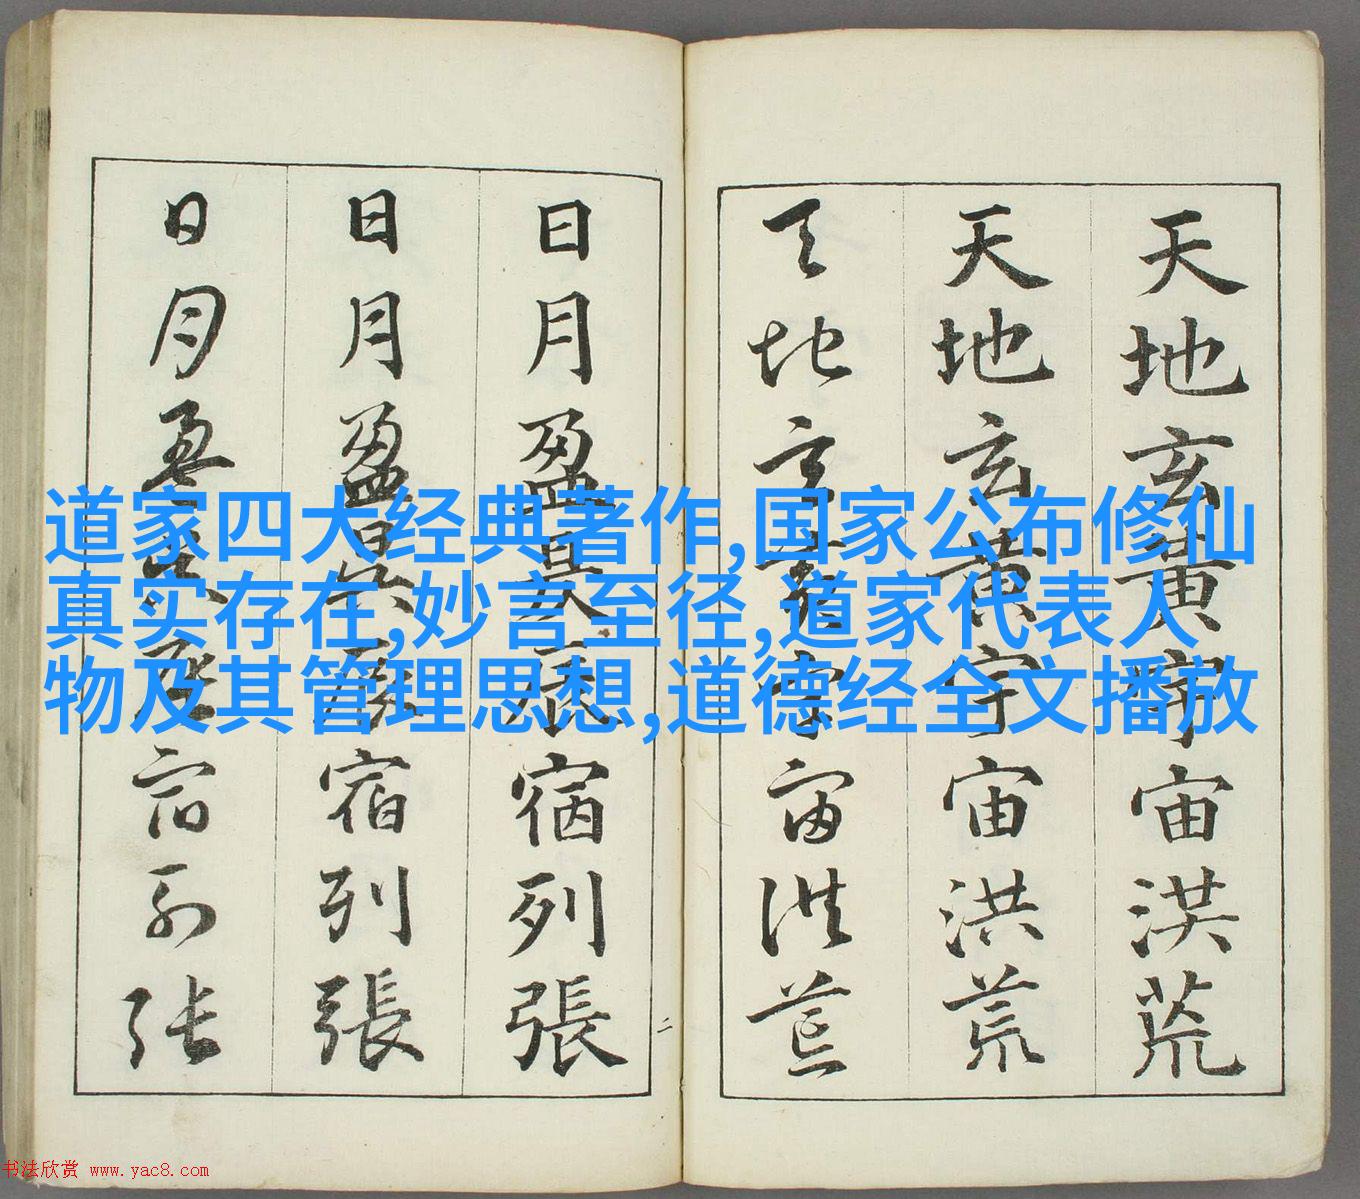 天地玄黄宇宙洪荒
天地玄黄宇宙洪荒
天地玄黄宇宙洪荒
日月盈昃辰宿列張
日月盈昃辰宿列張
日月盈昃辰宿列张
二
道家四大经典著作,国家公布修仙
真实存在,妙言至径,道家代表人
物及其管理思想,道德经全文播放
书法欣赏 www.yac8.com